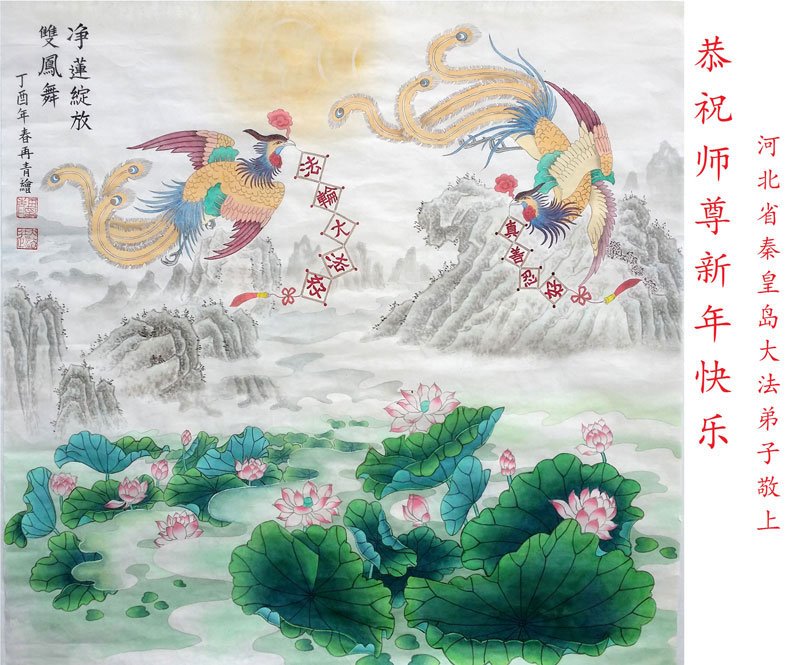 净蓮綻放
雙鳳舞
丁酉年春再青繪
法輪大法好
真善忍好
恭祝师尊新年快乐
河北省秦皇岛大法弟子敬上